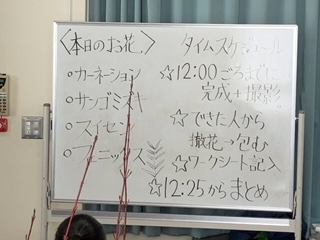 〈本日のお花〉
○カーネーション
○サンゴミズキ
○スイセン
○フェニックス
タイムスケジュール
☆12:00ごろまでに
完成+撮影
☆できた人から
撤花→包む
☆ワークシート記入
☆12:25からまとめ